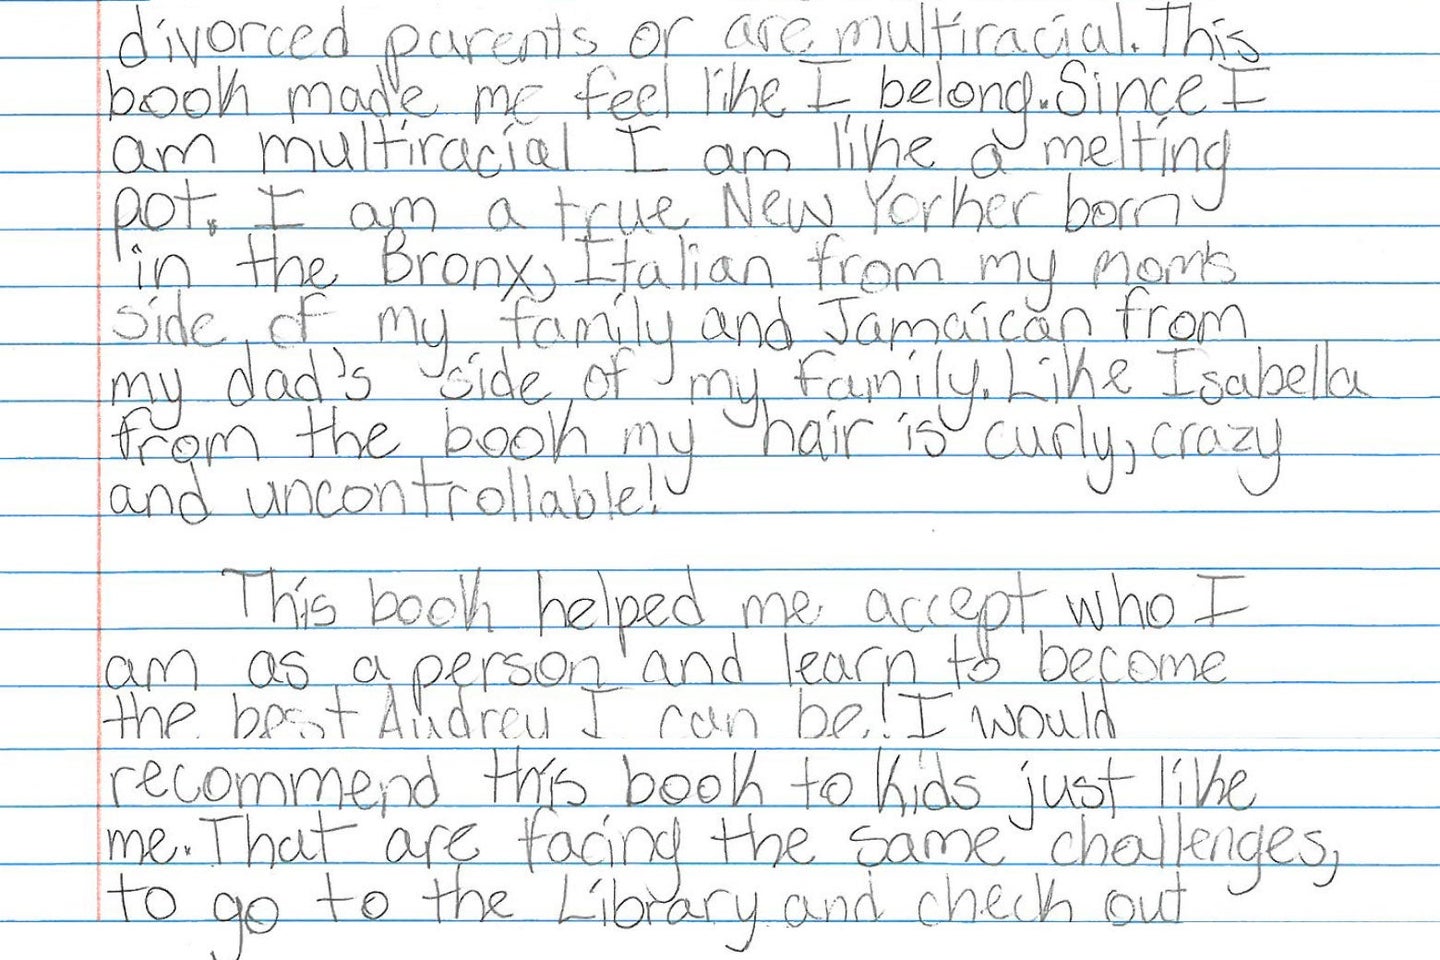 divorced parents or are multiracial. This
book made me feel like I belong. Since I
am multiracial I am like a melting
pot. I am a true New Yorker born
in the Bronx, Italian from my moms
side of my family and Jamaican from
my dad's side of my family. Like Isabella
from the book my hair is curly, crazy
and uncontrollable!
This book helped me accept who I
am as a person and learn to become
the best Audrey I can be! I would
recommend this book to kids just like
me. That are facing the same challenges,
to go to the Library and check out